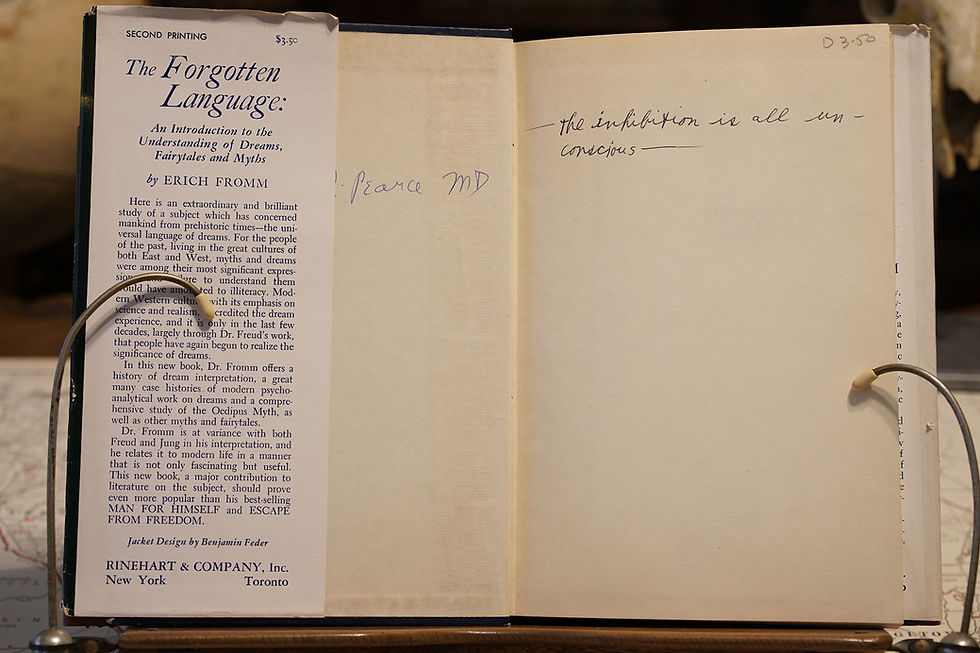 SECOND PRINTING
$3.50
The Forgotten
Language:
An Introduction to the
Understanding of Dreams,
Fairytales and Myths
by ERICH FROMM
Here is an extraordinary and brilliant
study of a subject which has concerned
mankind from prehistoric times—the uni-
versal language of dreams. For the people
of the past, living in the great cultures of
both East and West, myths and dreams
were among their most significant expres-
to understand them
have to illiteracy. Mod-
ern Western with its emphasis on
science and realism, credited the dream
experience, and it is only in the last few
decades, largely through Dr. Freud's work,
that people have again begun to realize the
significance of dreams.
In this new book, Dr. Fromm offers a
history of dream interpretation, a great
many case histories of modern psycho-
analytical work on dreams and a compre-
hensive study of the Oedipus Myth, as
well as other myths and fairytales.
Dr. Fromm is at variance with both
Freud and Jung in his interpretation, and
he relates it to modern life in a manner
that is not only fascinating but useful.
This new book, a major contribution to
literature on the subject, should prove
even more popular than his best-selling
MAN FOR HIMSELF and ESCAPE
FROM FREEDOM.
Jacket Design by Benjamin Feder
RINEHART & COMPANY, Inc.
New York Toronto
Pearce MD
D 3.50
—the inhibition is all un-
conscious—